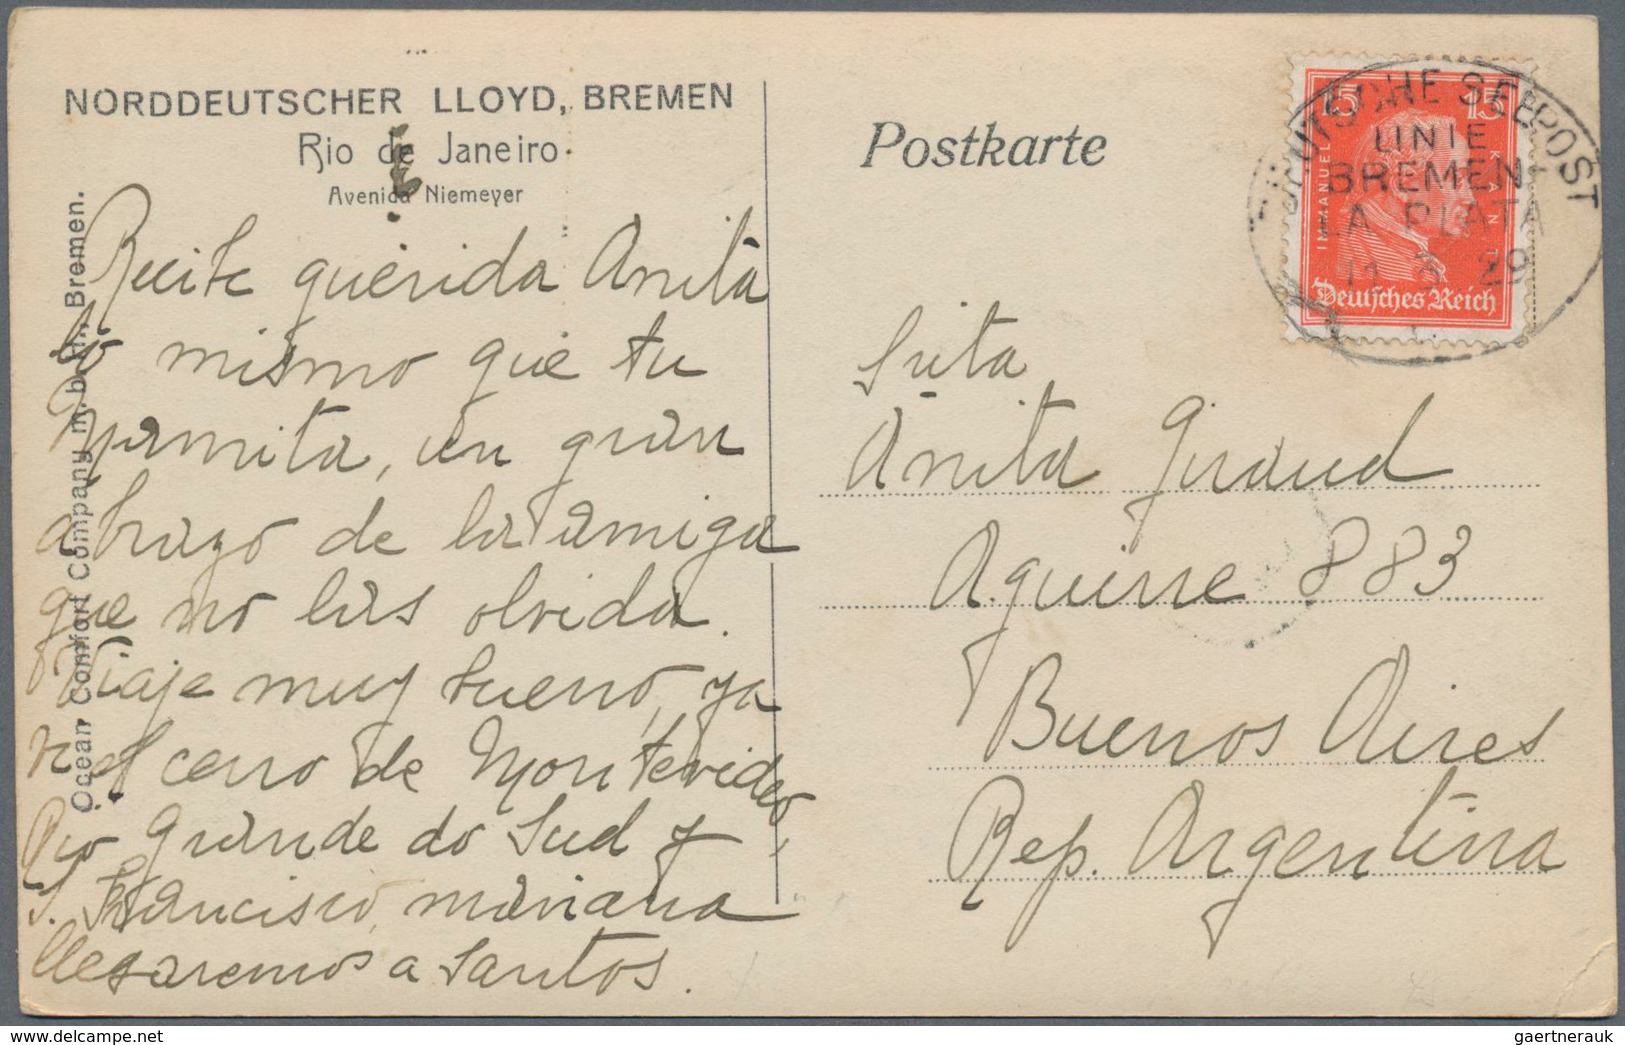 NORDDEUTSCHER LLOYD, BREMEN
Rio de Janeiro
Avenida Niemeyer
Recibe querida Anita
lo mismo que tu
Mamita, un gran
abrazo de la amiga
que no las olvida.
Viaje muy bueno, ya
el cerro de Montevideo,
Rio Grande do Sud y
S. Francisco, mañana
llegaremos a Santos.
Ocean Comfort Company m.b.H., Bremen.
Postkarte
15 15
IMMANUEL KANT
Deutsches Reich
DEUTSCHE SEEPOST
LINIE
BREMEN-
LA PLATA
11 29
Srita
Anita Giraud
Aguirre 883
Buenos Aires
Rep. Argentina
gaertnerauk @ delcampe.net